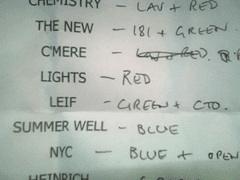 CHEMISTRY - LAV + RED
THE NEW - 181 + GREEN.
C'MERE -
LIGHTS - RED
LEIF - GREEN + CTO.
SUMMER WELL - BLUE
NYC - BLUE + OPEN
HEINRICH